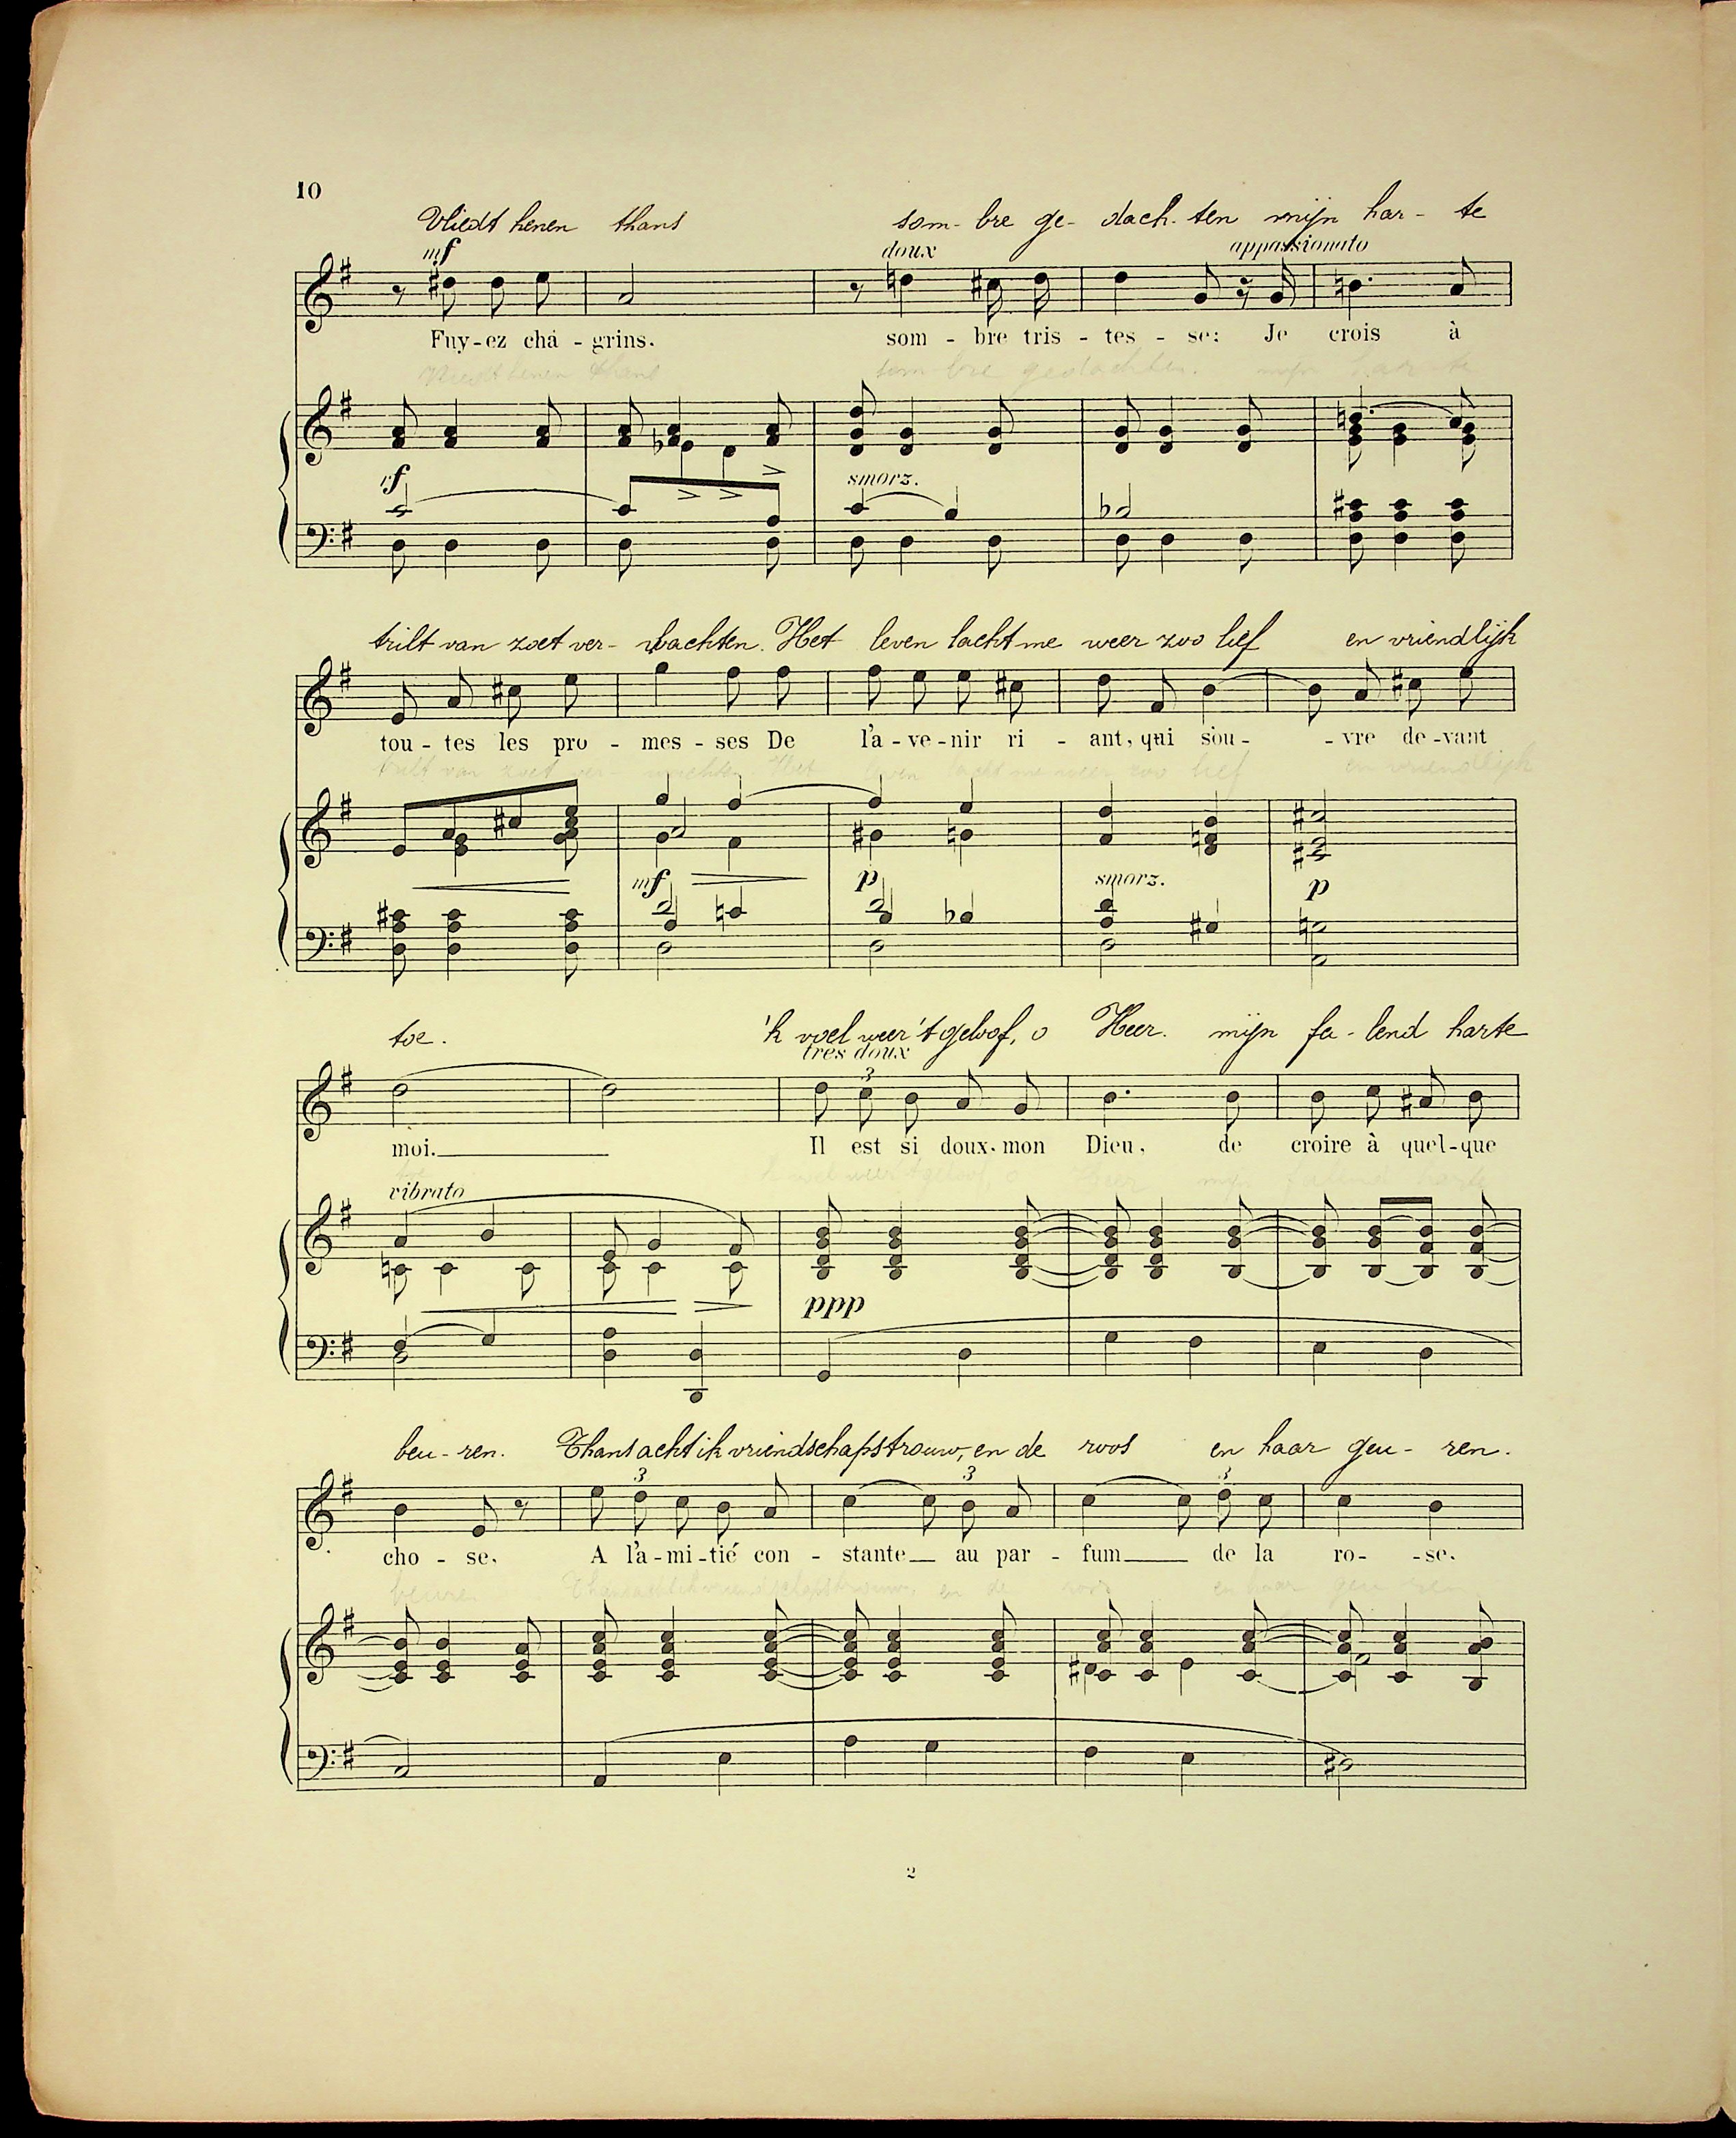 10
Vliedt henen thans som- bre ge- dach- ten mijn har- te
mf doux appassionato
Fuy-ez cha-grins. som-bre tris-tes-se: Je crois à
Vliedt henen thans som bre gedachten. mijn har te
rf smorz.
trilt van zoet ver- wachten. Het leven lacht me weer zoo lief en vriendlijk
tou-tes les pro-mes-ses De l'a-ve-nir ri-ant, qui s'ou- -vre de-vant
trilt van zoet ver- wachten Het leven lacht me weer zoo lief en vriendlijk
mf p smorz. p
toe. 'k voel weer 't geloof, o Heer. mijn fa-lend harte
tres doux
3
moi. Il est si doux. mon Dieu, de croire à quel-que
'k voel weer 't geloof, o Heer mijn falend harte
vibrato
ppp
beu-ren. Thans acht ik vriendschapstrouw, en de roos en haar geu-ren.
3 3 3
cho-se. A l'a-mi-tié con-stante au par-fum de la ro- -se.
beuren Thans acht ik vriendschapstrouw, en de roos en haar geu ren
2